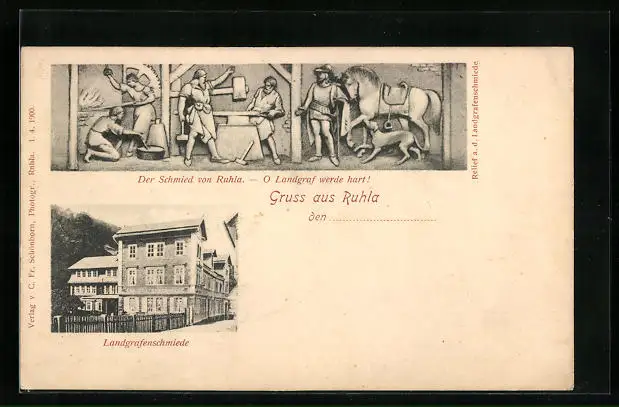 Der Schmied von Ruhla. — O Landgraf werde hart!
Relief a. d. Landgrafenschmiede
Gruss aus Ruhla
den
Landgrafenschmiede
Verlag v. C. Fr. Schönhorn, Photogr., Ruhla. 1. 4. 1900.